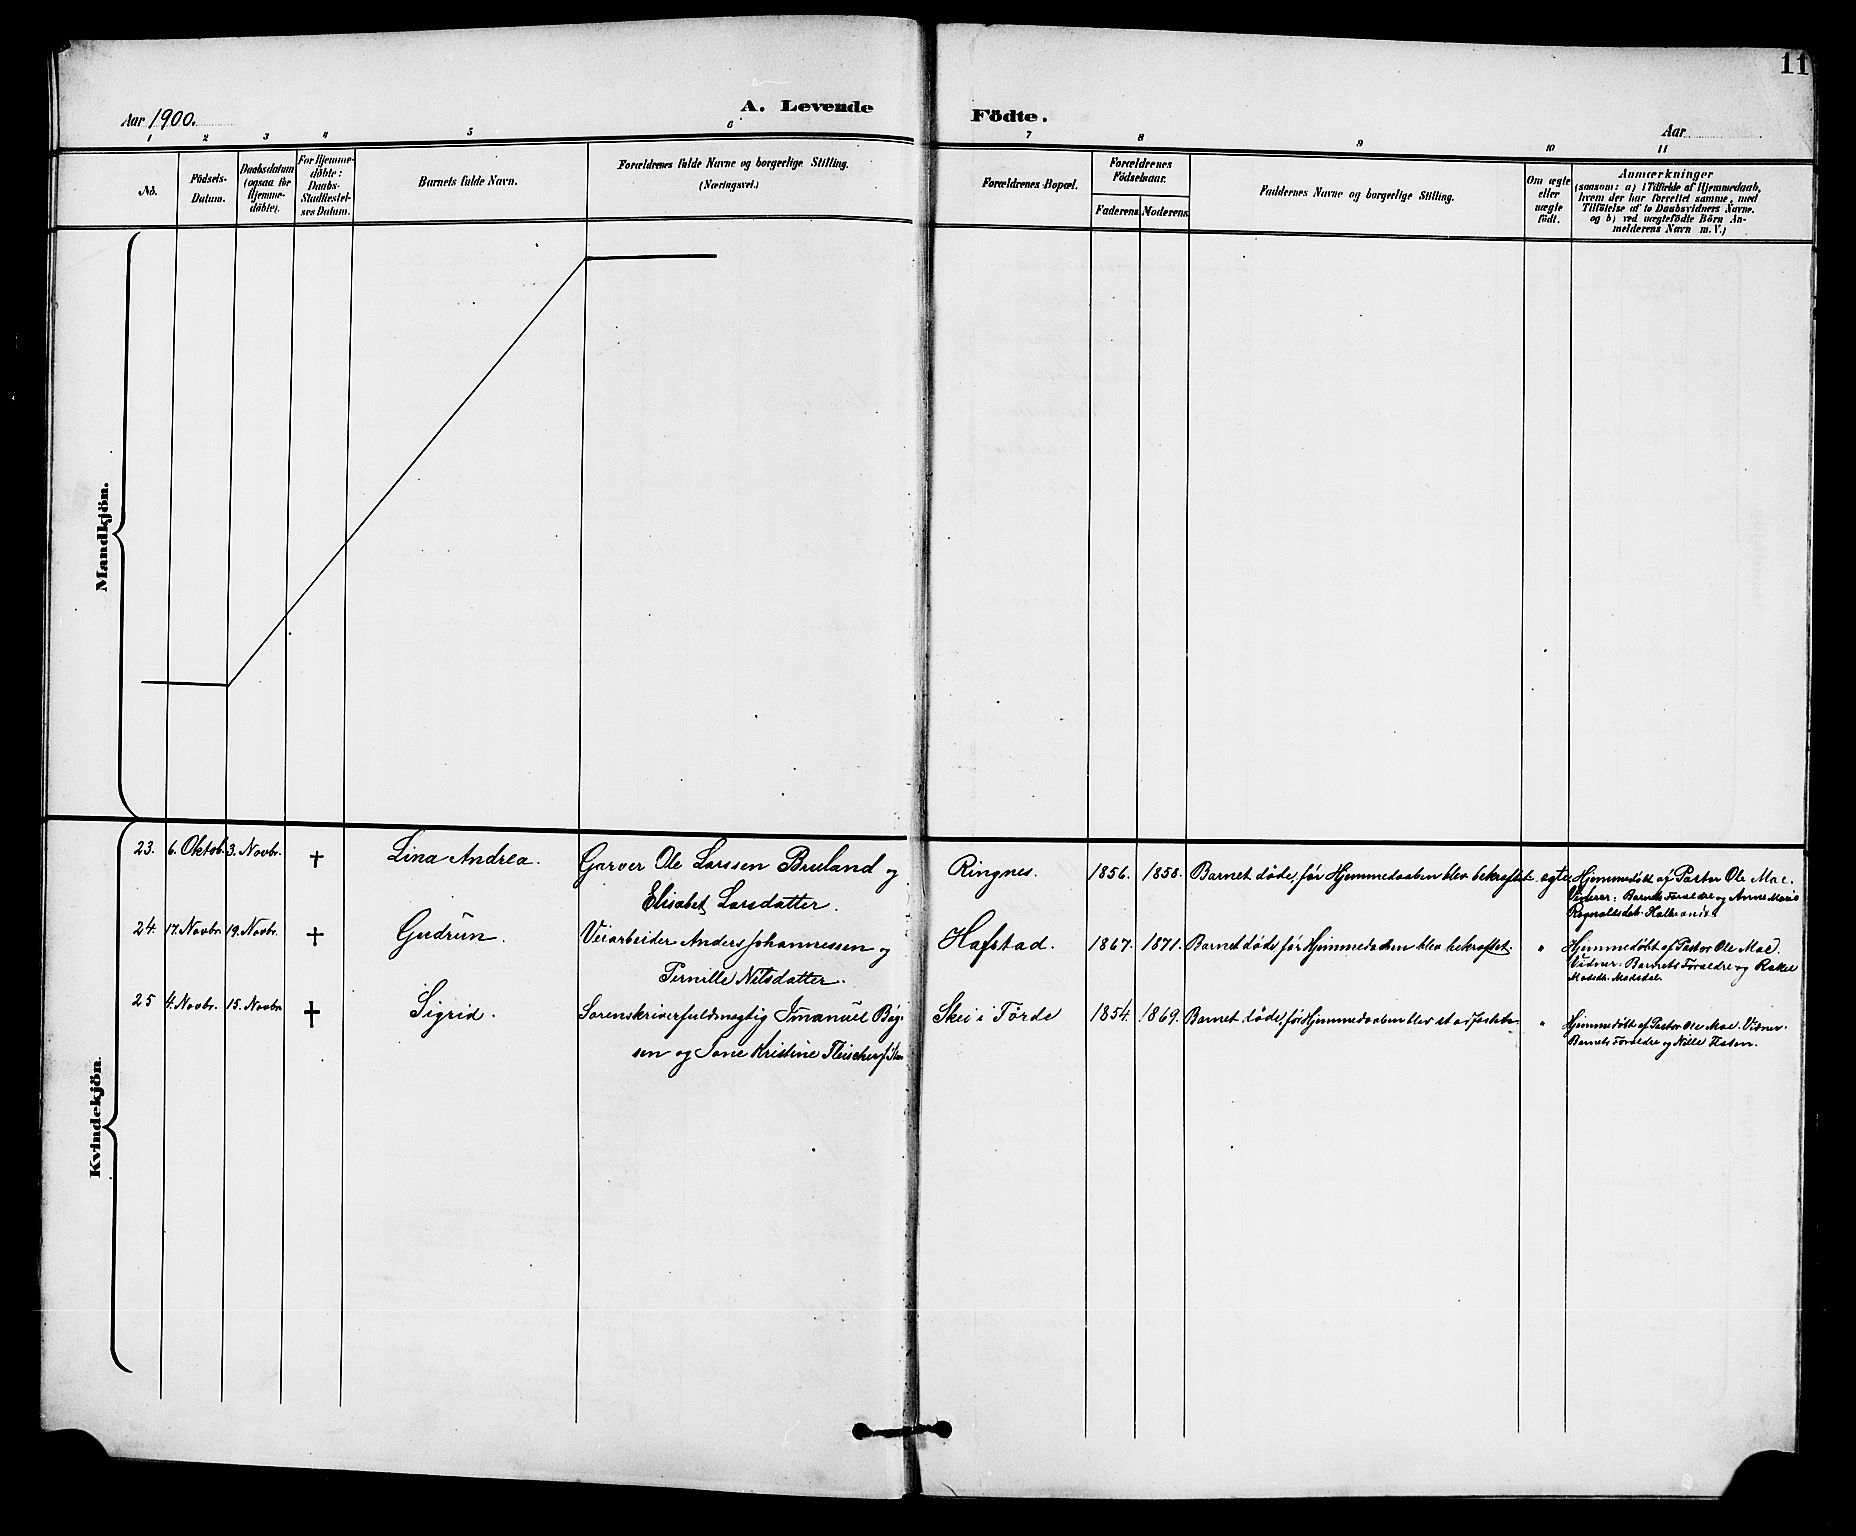 11
Aar 1900.
A. Levende
Födte.
Aar
1 2 3 4 5 6 7 8 9 10 11
No.
Födsels-
Datum.
Daabsdatum
(ogsaa for
Hjemme-
döbte).
For Hjemme-
döbte:
Daabs-
Stadfæstel-
ses Datum.
Barnets fulde Navn.
Forældrenes fulde Navne og borgerlige Stilling.
(Næringsvei.)
Forældrenes Bopæl.
Forældrenes
Födselsaar.
Faderens. Moderens.
Faddernes Navne og borgerlige Stilling.
Om ægte
eller
uægte
födt.
Anmærkninger
(saasom: a) i Tilfælde af Hjemmedaab,
hvem der har forrettet samme, med
Tilföielse af to Daabsvidners Navne.
og b) ved uægtefödte Börn An-
melderens Navn m. V.)
Mandkjön.
Kvindekjön.
23. 6. Oktob. 3. Novbr. † Lina Andrea. Garver Ole Larssen Bruland og
Elisabet Larsdatter.
Ringnes. 1856. 1858. Barnet døde, før Hjemmedaaben blev bekræftet. ægte
Hjemmedøbt af Pastor Ole Moe.
Vidner: Barnets Forældre og Anne Marie
24. 17. Novbr. 19. Novbr. † Gudrun. Veiarbeider Anders Johannessen og
Pernille Nilsdatter.
Hafstad. 1867. 1871. Barnet døde, før Hjemmedaaben blev bekræftet. "
Hjemmedøbt af Pastor Ole Moe.
Vidner: Barnets Forældre og Rakel
25 4. Novbr. 15. Novbr. † Sigrid. Sorenskriverfuldmægtig Imanuel Bøg-
sen og Jane Kristine Fleischer
Skei i Førde 1854. 1869. Barnet døde, før Hjemmedaaben blev "
Hjemmedøbt af Pastor Ole Moe. Vidner:
Barnets Forældre og Nille